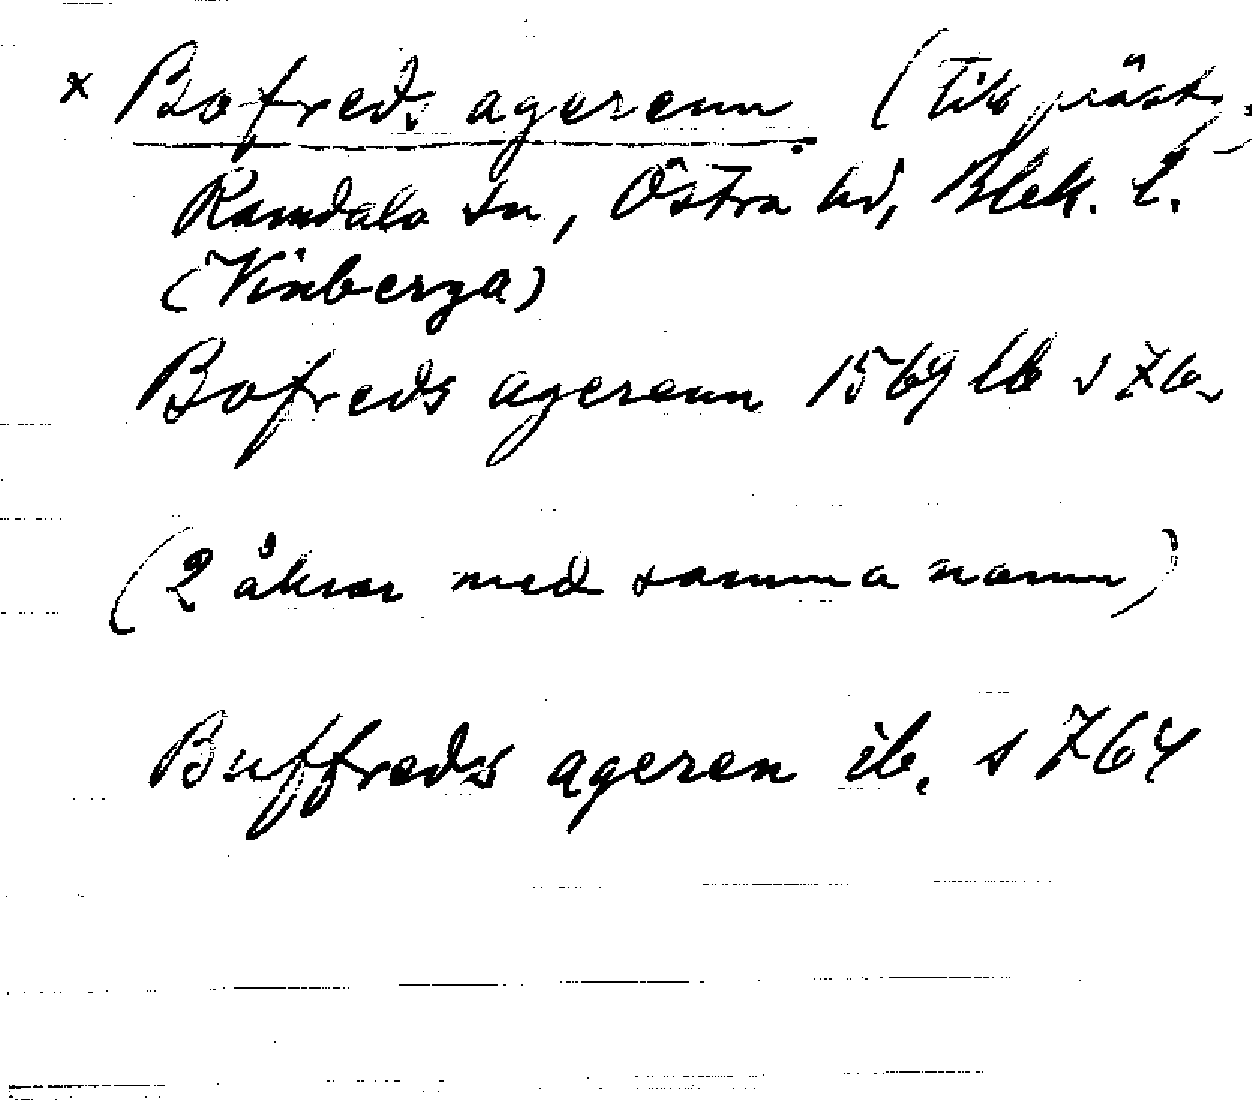 x Bofreds agerenn (till präst,
Ramdala sn, Östra hd, Blek. l.
(Vinberga)
Bofreds agerenn 1569 lb s 762
(2 åkrar med samma namn)
Buffreds ageren ib. s 764